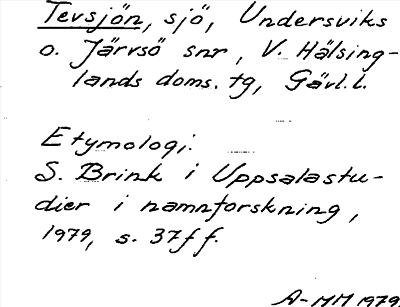 Tevsjön, sjö, Undersviks
o. Järvsö snr, V. Hälsing-
lands doms. tg, Gävl. l.
Etymologi:
S. Brink i Uppsalastu-
dier i namnforskning,
1979, s. 37ff.
A-MM 1979.